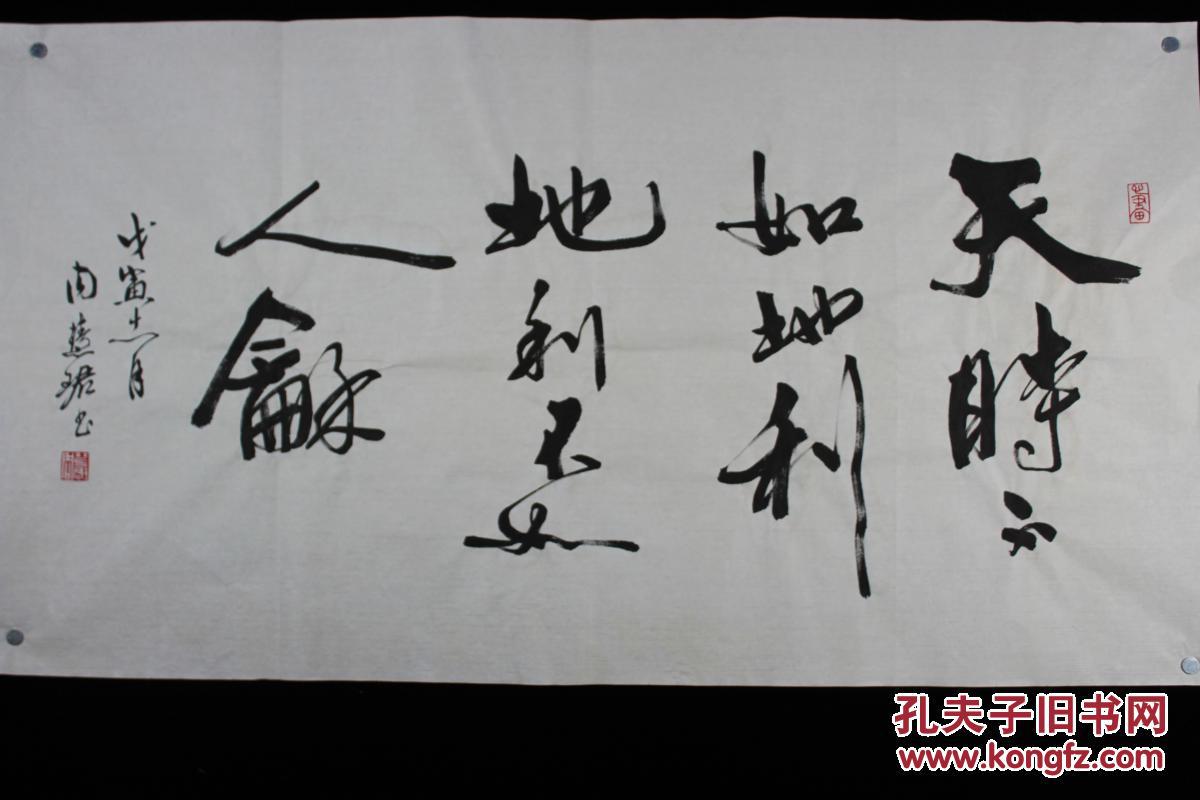 天時不
如地利
地利不如
人龢
戊寅十一月
南蕙珺书
孔夫子旧书网
www.kongfz.com